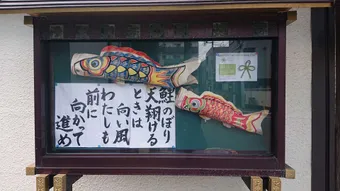 鯉のぼり
天翔ける
ときは
向い風
わたしも
前に
向かって
進め